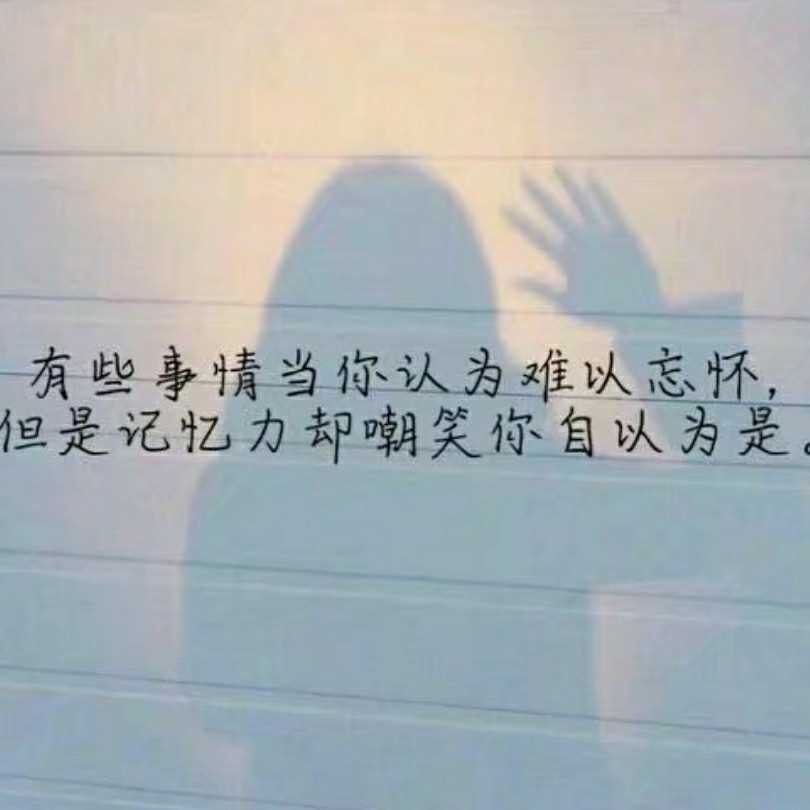 有些事情当你认为难以忘怀,
但是记忆力却嘲笑你自以为是。